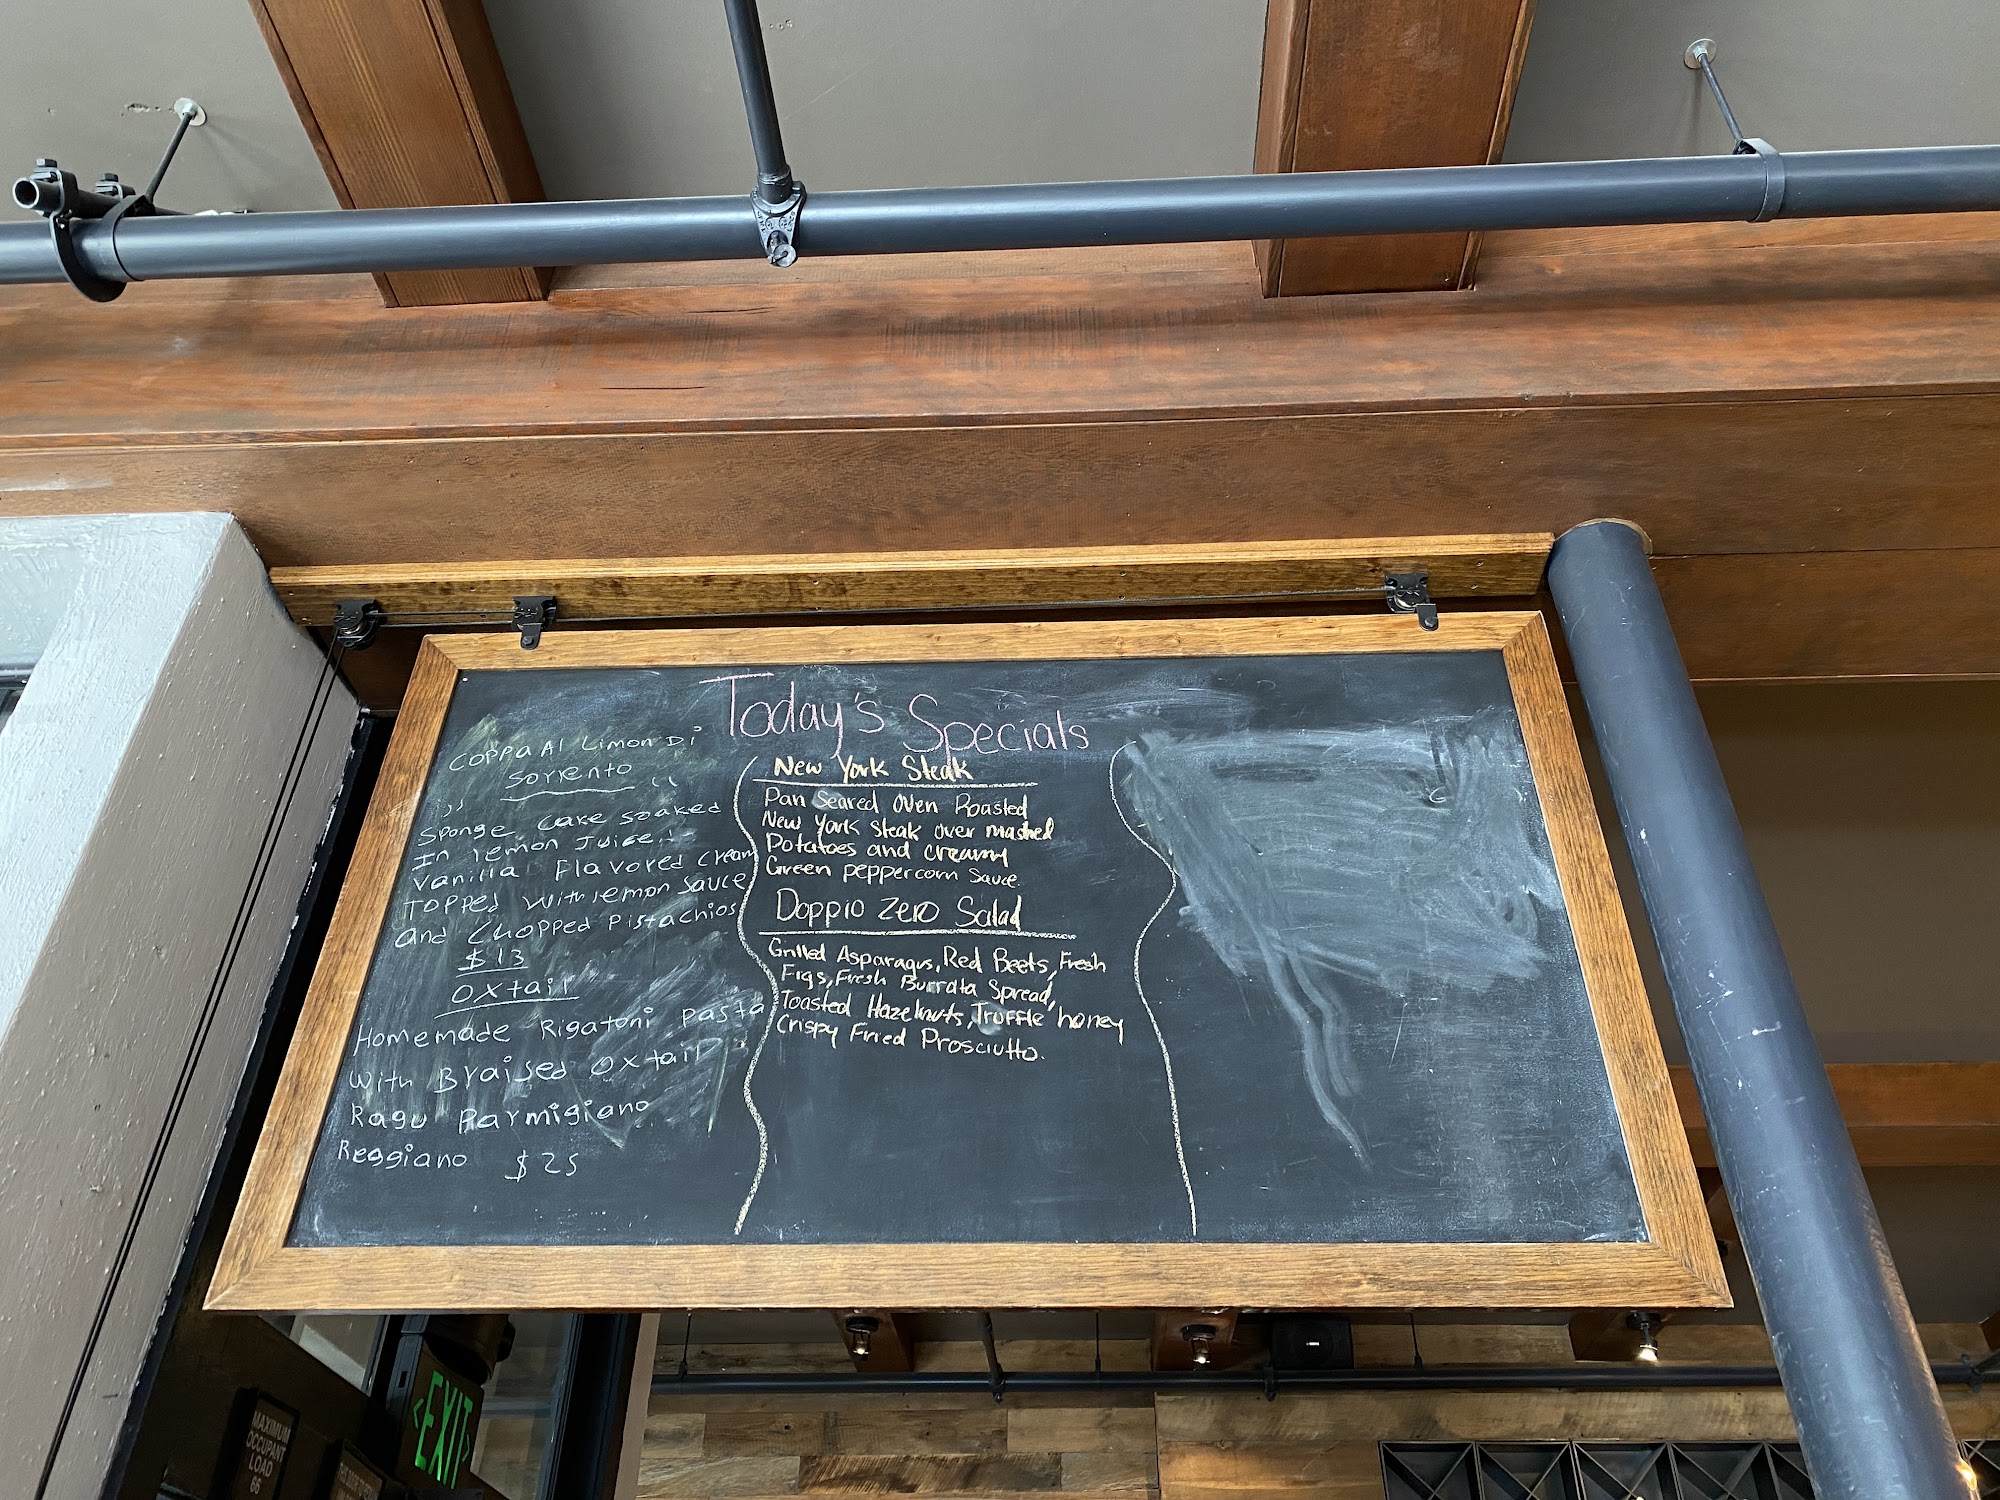 Today's Specials
Coppa Al Limon Di
Sorrento
,, "
Sponge cake soaked
In lemon Juice.
Vanilla Flavored cream
Topped with lemon sauce
and Chopped Pistachios
$13
Oxtail
Homemade Rigatoni Pasta
With Braised Oxtail
Ragu Parmigiano
Reggiano $25
New York Steak
Pan Seared Oven Roasted
New York steak over mashed
Potatoes and creamy
Green peppercorn sauce.
Doppio Zero Salad
Grilled Asparagus, Red Beets, Fresh
Figs, Fresh Burrata Spread,
Toasted Hazelnuts, Truffle honey
Crispy Fried Prosciutto.
<EXIT>
MAXIMUM
OCCUPANT
LOAD
66